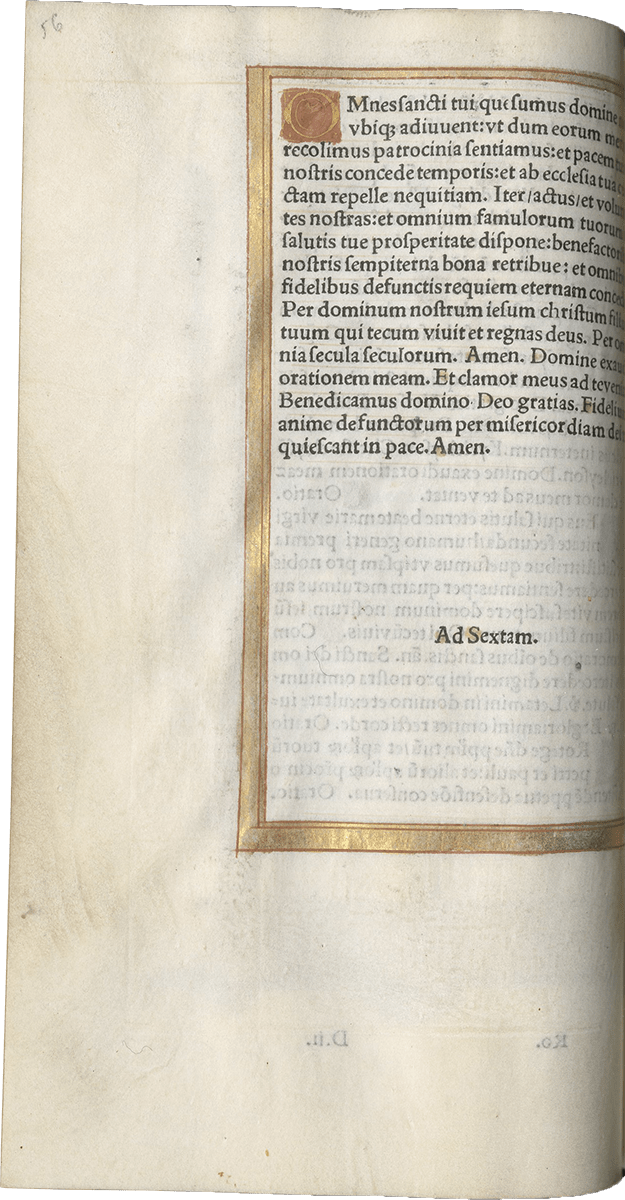 56
OMnes sancti tui quesumus domine
vbiqꝫ adiuuent: vt dum eorum me
recolimus patrocinia sentiamus: et pacem
nostris concede temporis: et ab ecclesia tua
ctam repelle nequitiam. Iter/actus/et volu
tes nostras: et omnium famulorum tuorum
salutis tue prosperitate dispone: benefactori
nostris sempiterna bona retribue: et omnib
fidelibus defunctis requiem eternam conced
Per dominum nostrum iesum christum filiu
tuum qui tecum viuit et regnas deus. Per om
nia secula seculorum. Amen. Domine exau
orationem meam. Et clamor meus ad te ven
Benedicamus domino Deo gratias. Fideliu
anime defunctorum per misericordiam dei
quiescant in pace. Amen.
Ad Sextam.